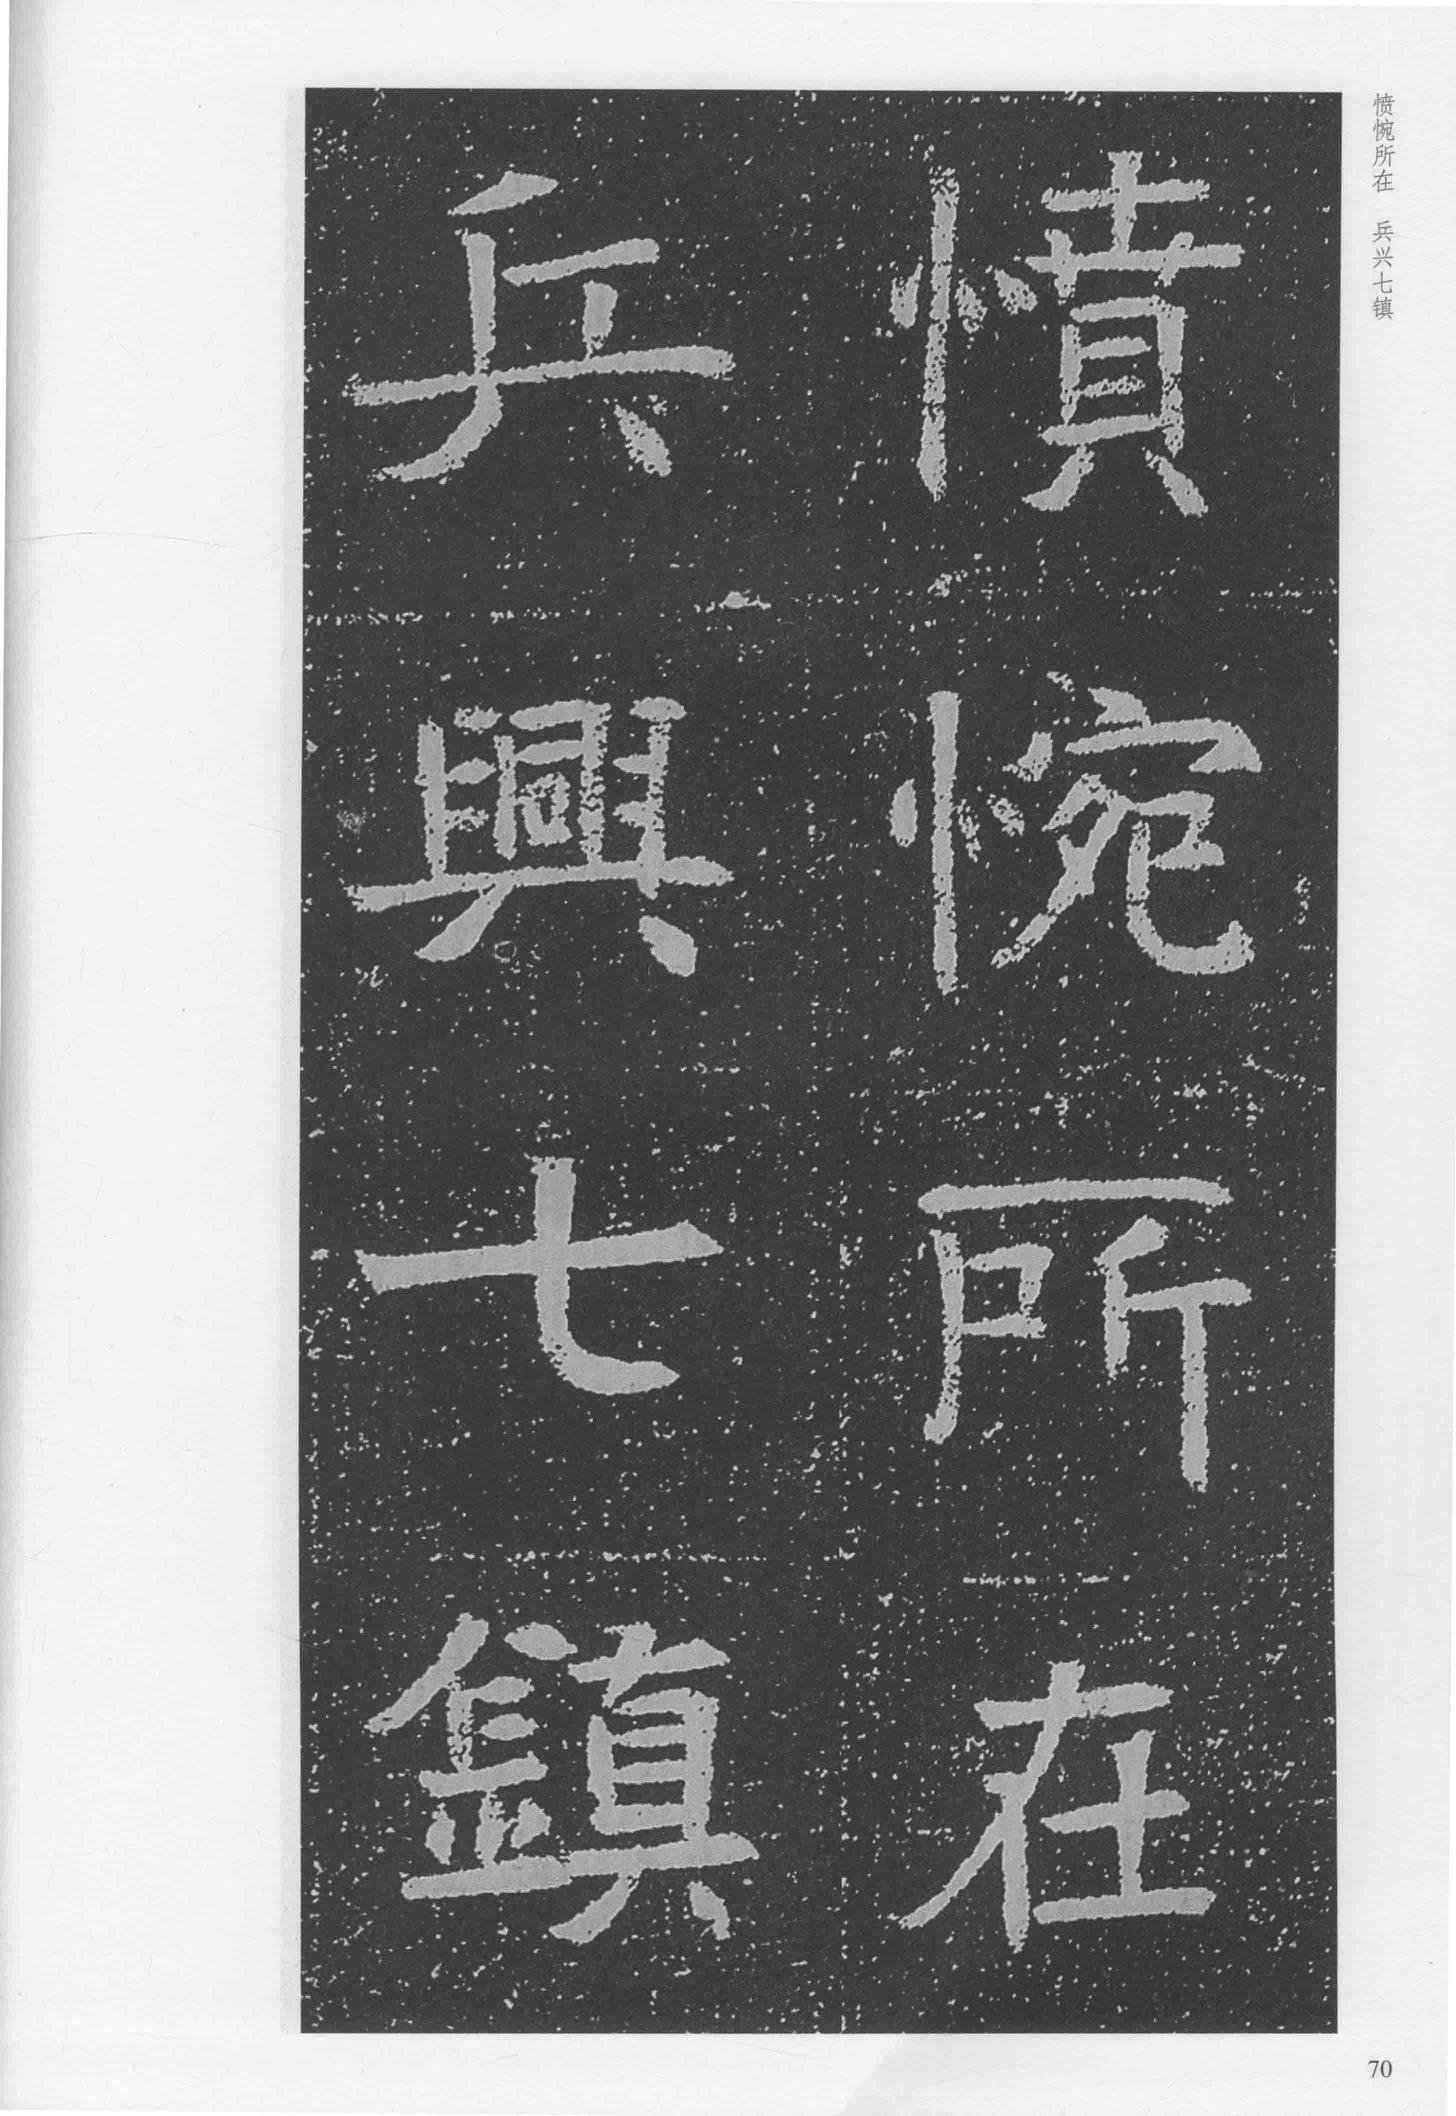 憤惋所在
兵興七鎮
愤惋所在 兵兴七镇
70